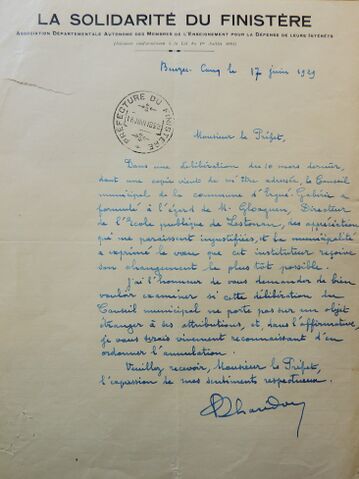 LA SOLIDARITÉ DU FINISTÈRE
ASSOCIATION DÉPARTEMENTALE AUTONOME DES MEMBRES DE L'ENSEIGNEMENT POUR LA DÉFENSE DE LEURS INTÉRÊTS
(Déclarée conformément à la Loi du 1er Juillet 1901)
Beuzec-Conq le 17 juin 1929
PRÉFECTURE DU FINISTÈRE
18 JUIN 1929
Monsieur le Préfet,
Dans une délibération du 10 mars dernier,
dont une copie vient de m'être adressée, le Conseil
municipal de la commune d'Ergué-Gabéric a
formulé à l'égard de Mr Gloaguen, Directeur
de l'Ecole publique de Lestonan, des appréciations
qui me paraissent injustifiées, et la municipalité
a exprimé le vœu que cet instituteur reçoive
son changement le plus tôt possible.
J'ai l'honneur de vous demander de bien
vouloir examiner si cette délibération du
Conseil municipal ne porte pas sur un objet
étranger à ses attributions, et, dans l'affirmative,
je vous serais vivement reconnaissant d'en
ordonner l'annulation.
Veuillez recevoir, Monsieur le Préfet,
l'expression de mes sentiments respectueux.